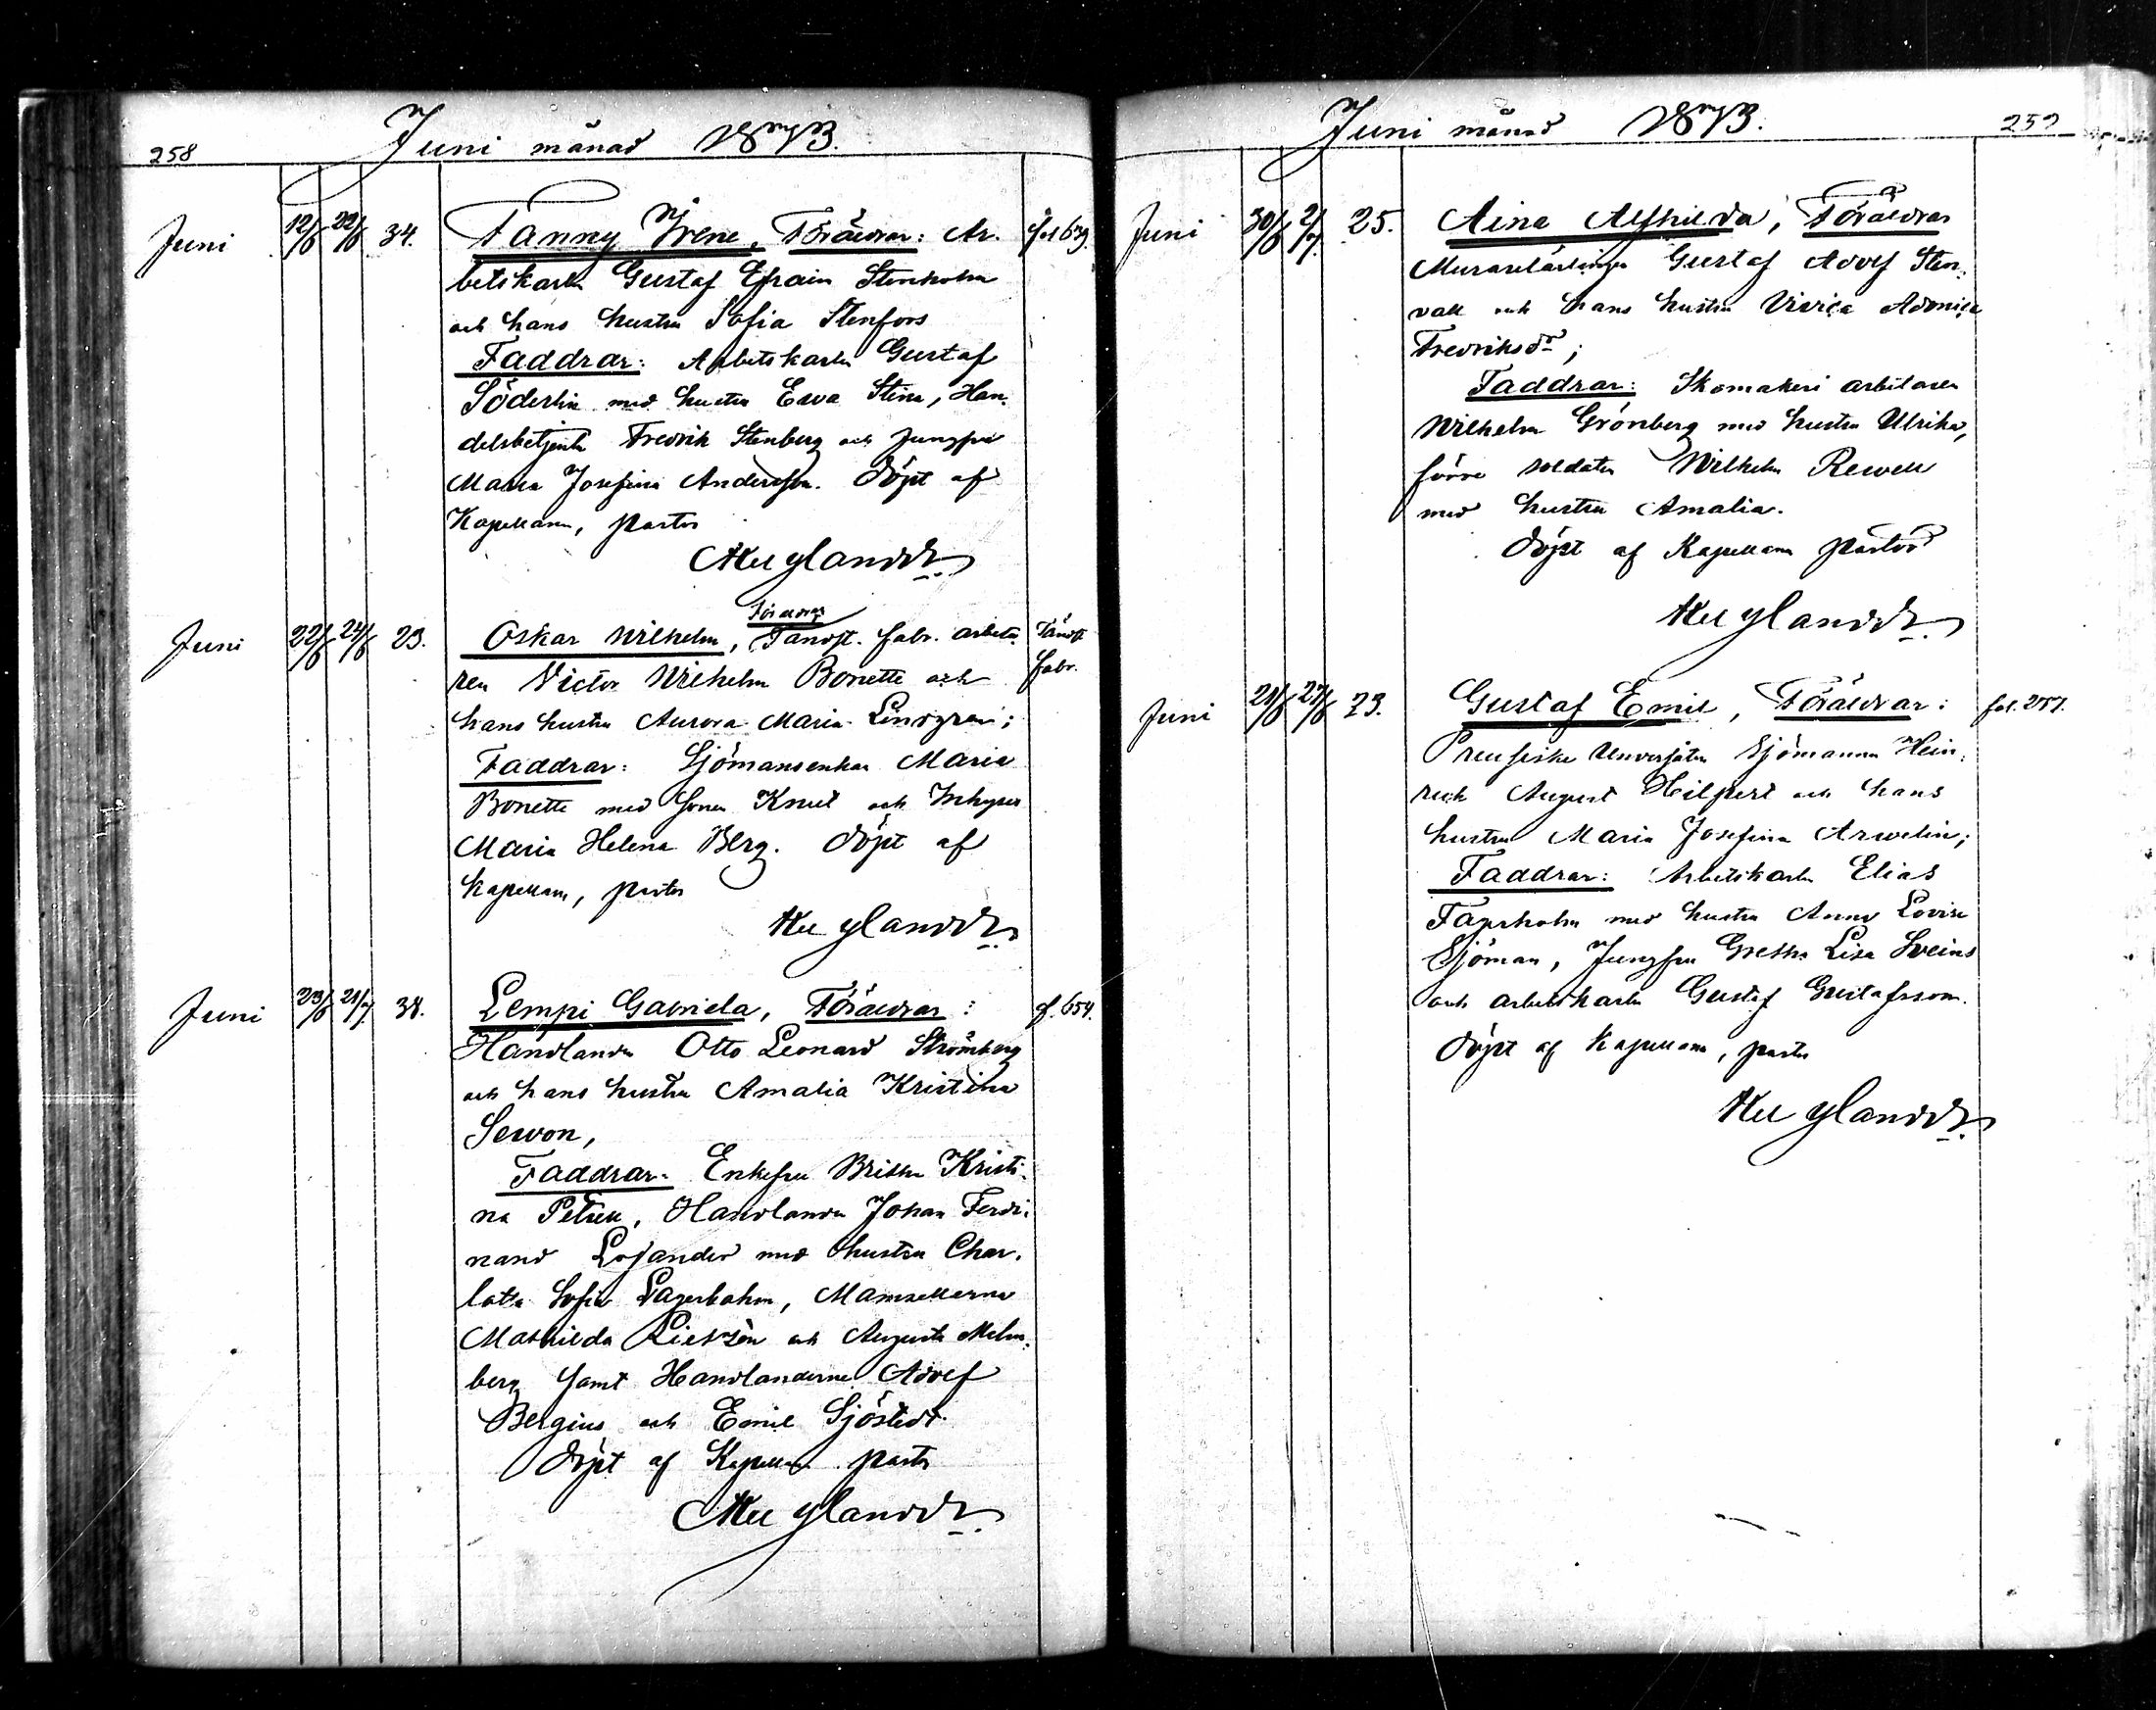 258
Juni månad 1873.
Juni 12/6 22/6 34. Fanny Irene, Föräldrar: Ar- fol 679.
betskarln Gustaf Efraim Stenholm
och hans hustru Sofia Stenfors
Faddrar: Arbetskarln Gustaf
Söderlin med hustru Ewa Stina, Han-
delsbetjenten Fredrik Stenberg och Jungfru
Maria Josefina Andersson. Döpt af
Kapellanen, pastor
Neuglander
Föräldrar
Juni 22/6 24/6 23. Oskar Wilhelm, Tändst. fabr. arbeta- Tändst
ren Victor Wilhelm Bonette och fabr.
hans hustru Aurora Maria Lindgren;
Faddrar: Sjömansenkan Maria
Bonette med sonen Knut och Inhyses
Maria Helena Berg. Döpt af
Kapellanen, pastor
Neuglander
Juni 23/6 21/7 38. Lempi Gabriela, Föräldrar: f. 654.
Handlanden Otto Leonard Strömberg
och hans hustru Amalia Kristina
Sewon,
Faddrar: Enkefru Britta Kristi-
na Petrell, Handlanden Johan Ferdi-
nand Lojander med hustru Char-
lotta Sofia Lagerbohm, Mamsellerna
Mathilda Lietzén och Augusta Malm-
berg samt Handlanderne Adolf
Bergius och Emil Sjöstedt.
Döpt af Kapellanen pastor
Neuglander
Juni månad 1873.
259
Juni 30/6 2/7 25. Aina Alfhilda, Föräldrar
Murarelärlingen Gustaf Adolf Sten-
vall och hans hustru Vivica Adonica
Fredriksdr;
Faddrar: Skomakeri arbetaren
Wilhelm Grönberg med hustru Ulrika,
förre soldaten Wilhelm Rewell
med hustru Amalia.
Döpt af Kapellanen pastor
Neuglander
Juni 21/6 27/6 23. Gustaf Emil, Föräldrar: fol. 257.
Preussiske Undersåten Sjömannen Hein-
rich August Hilpert och hans
hustru Maria Josefina Arwelin;
Faddrar: Arbetskarln Elias
Fagerholm med hustru Anna Lovisa
Sjöman, Jungfru Gretha Lisa Sveins
och arbetskarln Gustaf Gustafsson.
Döpt af Kapellanen, pastor
Neuglander